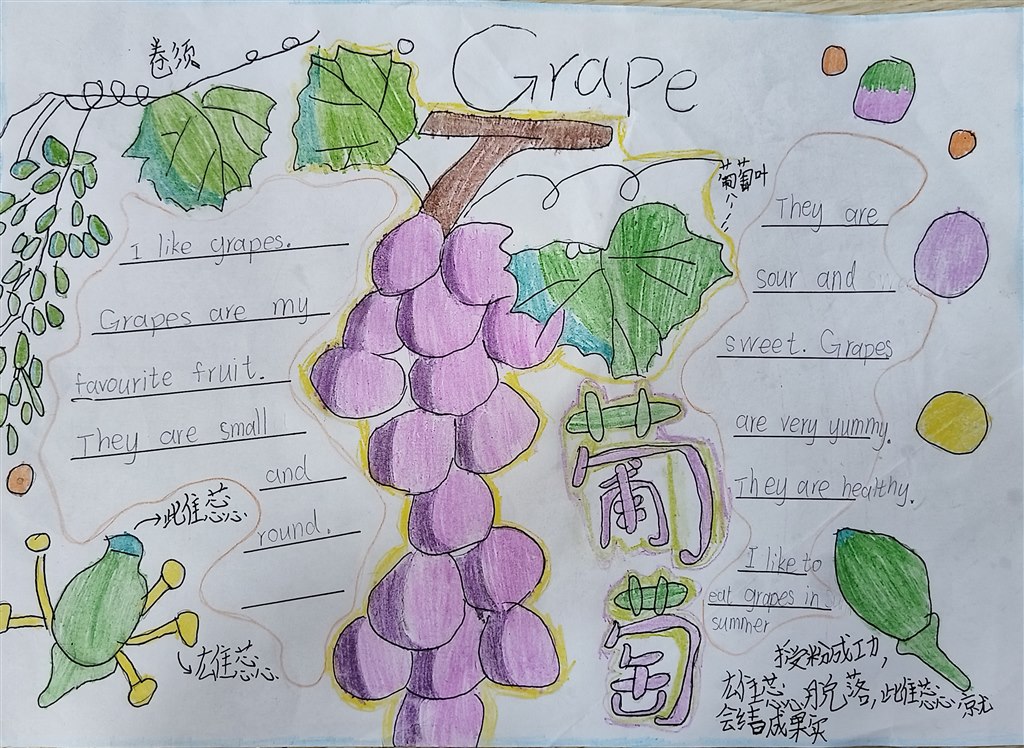 Grape
卷须
葡萄叶
I like grapes.
Grapes are my
favourite fruit.
They are small
and
round.
They are
sour and
sweet. Grapes
are very yummy.
They are healthy.
I like to
eat grapes in
summer
葡萄
此雌蕊
雄蕊
授粉成功,
雄蕊脱落,此雌蕊就
会结成果实